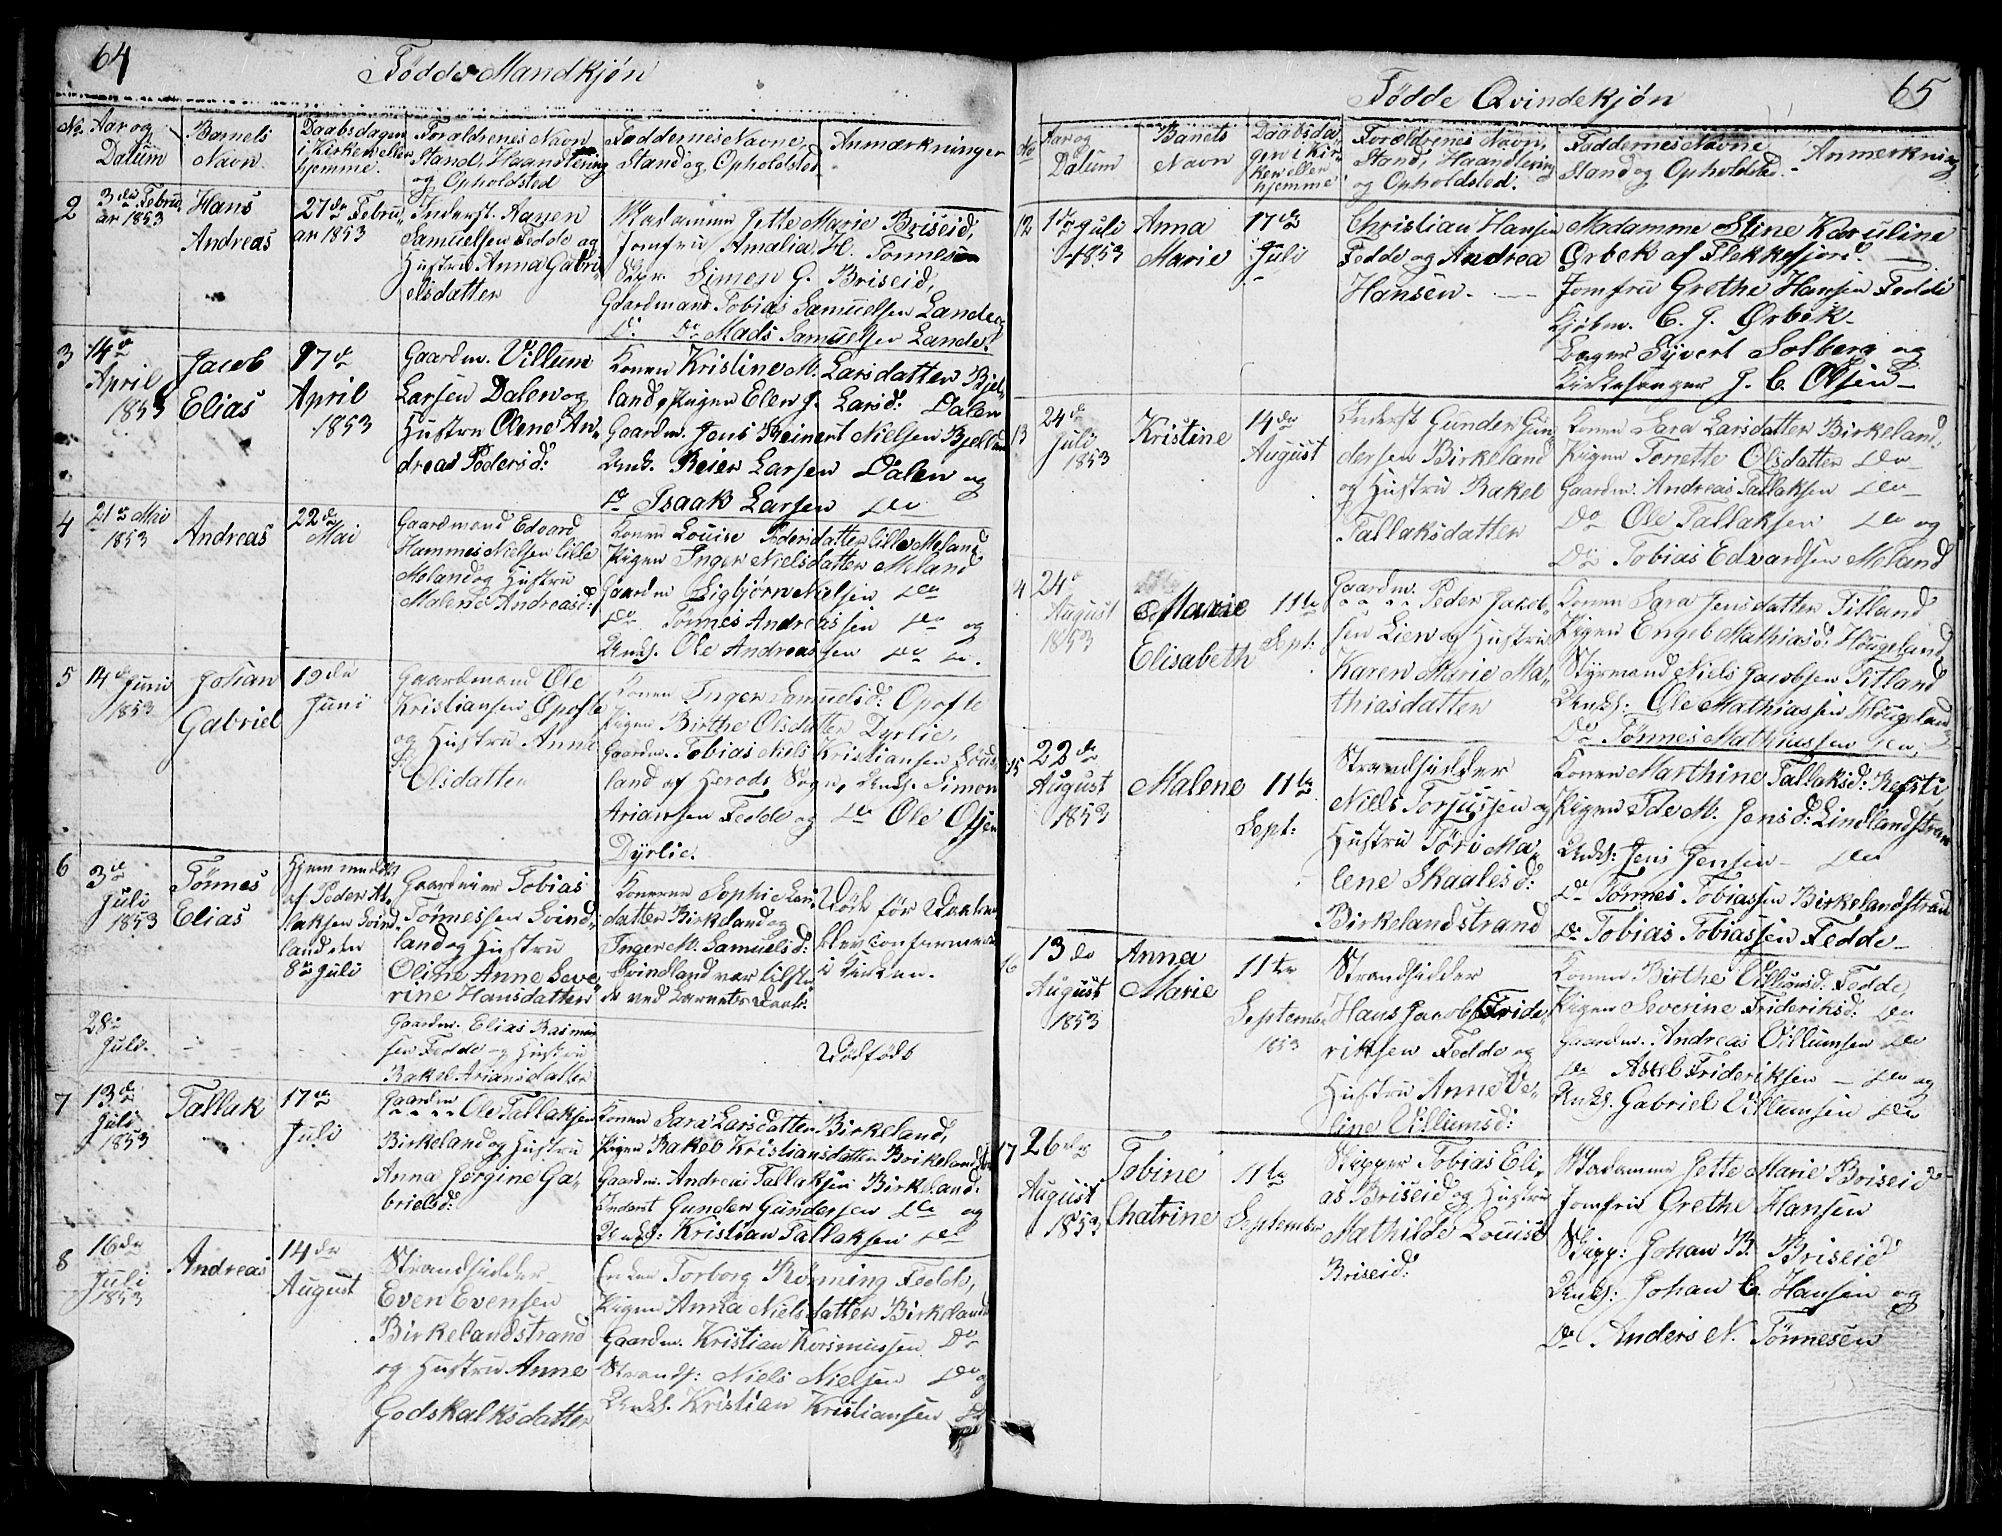 64
Fødde Mandkjøn
No. Aar og Datum
Barnets Navn.
Daabsdagen i Kirken eller hjemme.
Forældrenes Navn Stand, Haandtering og Opholdsted
Faddernes Navne, Stand og Opholdsted
Anmærkninger
2
3de Febru-
ar 1853
Hans
Andreas
27de Febru-
ar 1853
Inderst. Aanen
Samuelsen Fedde og
Hustru Anna Gabri-
elsdatter
Madamme Jette Marie Briseid,
Jomfru Amalia H. Tønnesen
Simon G. Briseid,
Gaardmand Tobias Samuelsen Lande og
Do. Do Mads Samuelsen Lande.
3
14de
April
1853
Jacob
Elias
17de
April
1853
Gaardm. Villum
Larsen Dalen og
Hustru Olene An-
dreas Pedersd:
Konen Kristine M. Larsdatter Bjel-
land, Pigen Elen J. Larsd: Dalen
Gaardm. Jens Reinert Nielsen Bjelland
Ungk. Reier Larsen Dalen og
do Isaak Larsen do
4
21de Mai
1853
Andreas
22de
Mai
Gaardmand Edvard
Hammes Nielsen lille
Meland og Hustru
Malene Andreasd:
Konen Louise Pedersdatter lille Meland,
Pigen Inger Nielsdatter Meland
Gaardm Sigbjørn Nielsen do
do Tønnes Andreassen do og
Ungk. Ole Andreassen do do.
5
14de Juni
1853
Johan
Gabriel
19de
Juni
Gaardmand Ole
Kristiansen Opofte
og Hustru Anne
Olsdatter
Konen Inger Samuelsd: Opofte
Pigen Birthe Olsdatter Dyrlie,
Gaardm. Tobias Niels Kristiansen Løds-
land af Herods Sogn, Ungk. Simon
Ariansen Fedde og do Ole Olsen
Dyrlie.
6
3de
Juli
1853
Tønnes
Elias
Hjemmedøbt
af Peder At-
laksen Svind-
land den
8de Juli
Gaardeier Tobias
Tønnessen Svind-
land og Hustru
Oline Anne Seve-
rine Hansdatter
Konerne Sophie Lars-
datter Birkeland og
Inger M. Samuelsd:
Svindland var tilste-
de ved Barnets Daab.
Død før Daaben
blev confirmeret
i Kirken.
28de
Juli.
Gaardm. Elias Rasmus-
sen Fedde og Hustru
Rakel Ariansdatter
Dødfødt
7
13de
Juli
1853
Tallak
17de
Juli
Gaardm
Ole Tallaksen
Birkeland og Hustru
Anna Jørgine Ga-
brielsd:
Konen Sara Larsdatter Birkeland,
Pigen Rakel Kristiansdatter Birkelandstr
Gaardm. Andreas Tallaksen Birkeland.
Inderst Gunder Gundersen do og
Ungk: Kristian Tallaksen do
8
16de
Juli
1853
Andreas
14de
August
Strandsidder
Even Evensen
Birkelandstrand
og Hustru Anne
Godskalksdatter
Enken Torborg Rønning Fedde,
Pigen Anna Nielsdatter Birkeland
Gaardm. Kristian Korsmussen Do
Strands: Niels Nielsen do og
Ungk. Kristian Kristiansen do
65
Fødde Qvindekjøn
No
Aar og Datum
Barnets Navn
Daabsda-
gen i Kir-
ken eller
hjemme
Forældrenes Navn,
Stand, Haandtering
og Opholdsted.
Faddernes Navne
Stand og Opholdsted.
Anmerkning
12
1de Juli
1853
Anna
Marie
17de
Juli
Christian Hansen
Fedde og Andrea
Hansen.
Madamme Stine Karuline
Ørbek af Flekkefjord.
Jomfru Grethe Hansen Fedde
Kjøbm. C. J. Ørbek
Bager Syvert Solberg og
Kirkesanger J. C. Olsen
13
24de
Juli
1853
Kristine
14de
August
Inderst Gunder Gun-
dersen Birkeland
og Hustru Rakel
Tallaksdatter
Konen Sara Larsdatter Birkeland,
Pigen Tonette Olsdatter do
Gaardm. Andreas Tallaksen do
Do Ole Tallaksen do og
Do Tobias Edvardsen Meland
14
24de
August
1853
Marie
Elisabeth
11te
Sept:
Gaardm.
Peder Jakob-
sen Lien og Hustru
Karen Marie Ma-
thiasdatter
Konen Sara Jensdatter Titland
Pigen Engeb Mathiasd: Hougeland,
Styrmand Niels Jacobsen Titland
Ungk: Ole Mathiassen Hougeland
Do Tønnes Mathiassen do.
15
22de
August
1853
Malene
11te
Sept:
Strandsidder
Niels Torjussen og
Hustru Tøri Ma-
lene Skaalesd:
Birkelandstrand
Konen Marthine Tallaksd: Refsti,
Pigen Ide M. Jensd: Lindlandstrand
Ungk: Jens Jensen do
do Tønnes Tobiassen Birkelandstrand
do Tobias Tobiassen Fedde
16
13de
August
1853
Anna
Marie
11te
Septembr
1853
Strandsidder
Hans Jacob Fride-
riksen Fedde og
Hustru Anne Ve-
line Villumsd:
Konen Birthe Villumsd: Fedde,
Pigen Severine Frideriksd: do
Gaardm. Andreas Villumsen do
do Axel Frideriksen do og
Ungk. Gabriel Villumsen do
17
26de
August
1853
Tobine
Chatrine
11te
Septembr
Skipper Tobias Eli-
as Briseid og Hustru
Mathilde Louise
Briseid:
Madamme Jette Marie Briseid
Jomfru Grethe Hansen
Skipp: Johan B. Briseid
Ungk: Johan C. Hansen og
Do Anders N. Tønnesen